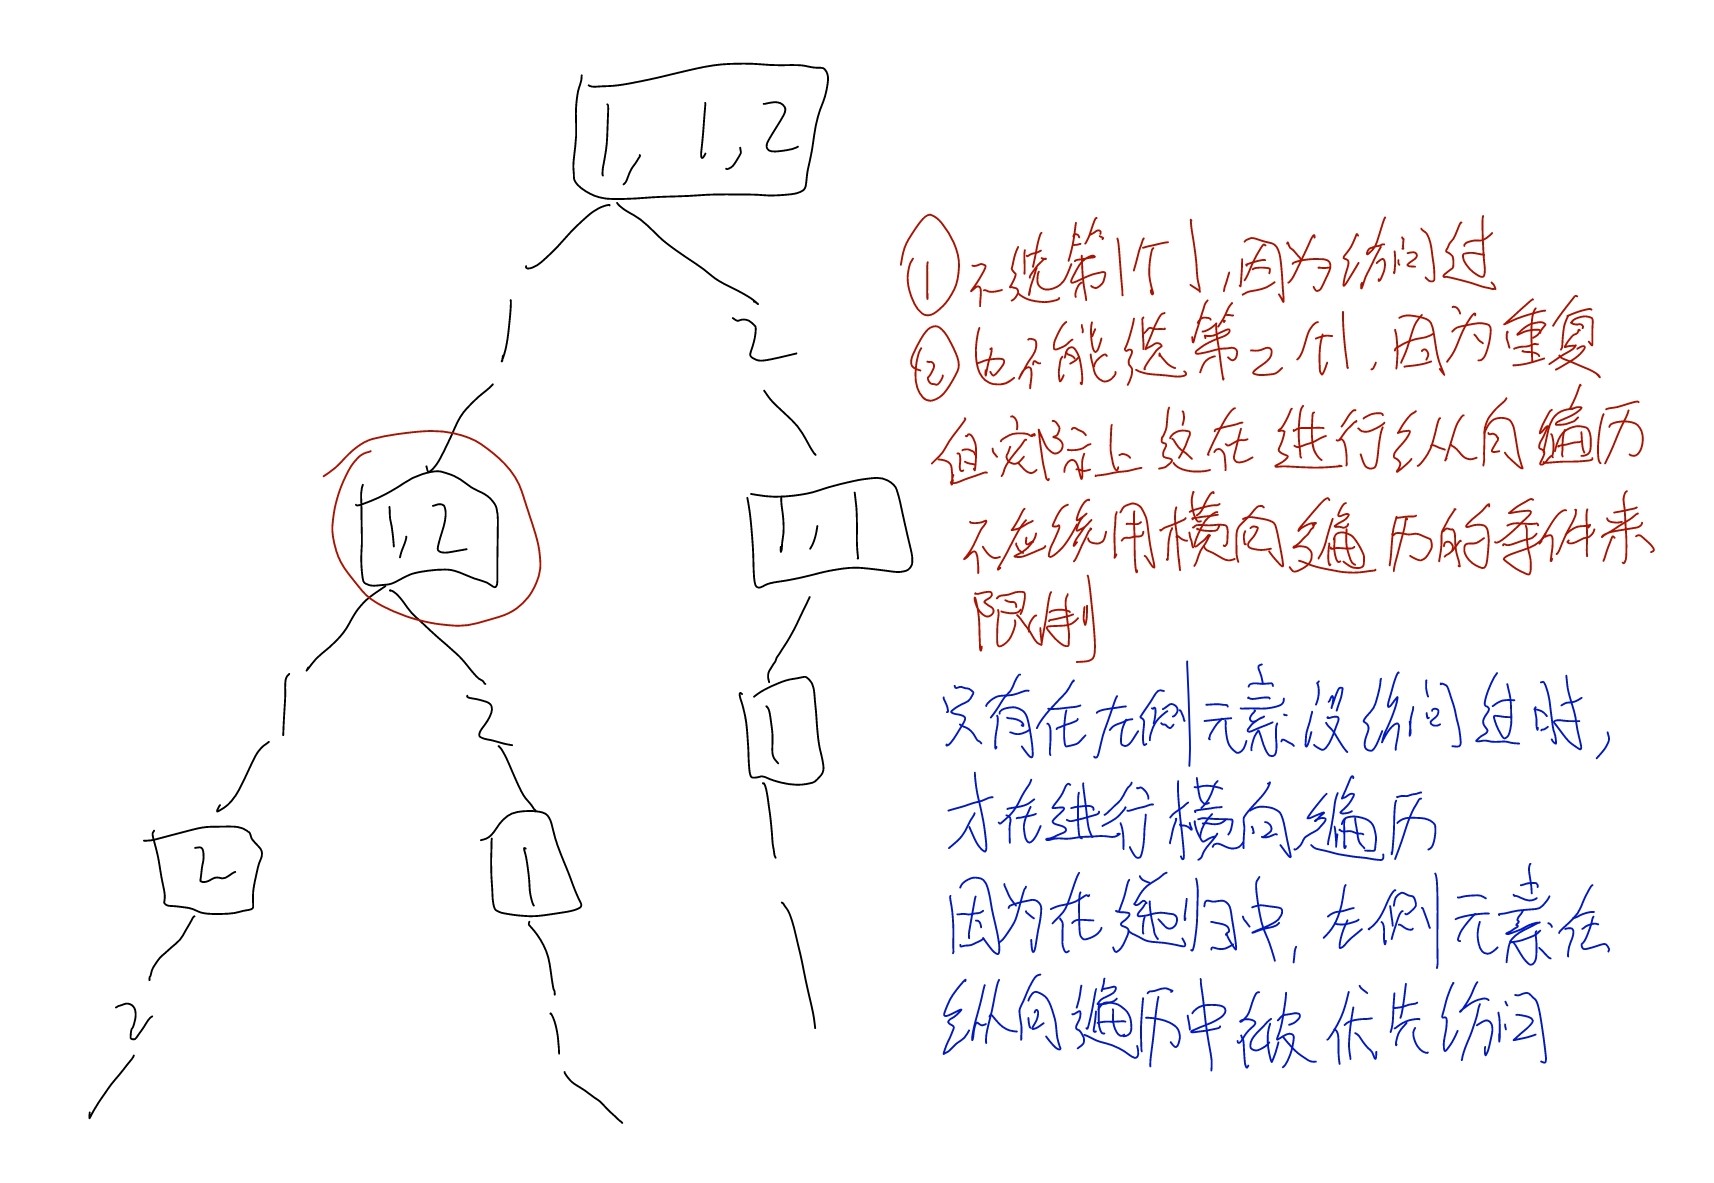 1, 1, 2
1
2
1, 2
1, 1
1
2
1
2
1
2
1
①不选第1个1,因为访问过
②也不能选第二个1,因为重复
但实际上这在进行纵向遍历
不应该用横向遍历的条件来
限制
只有在左侧元素没访问过时,
才在进行横向遍历
因为在递归中,左侧元素在
纵向遍历中被优先访问